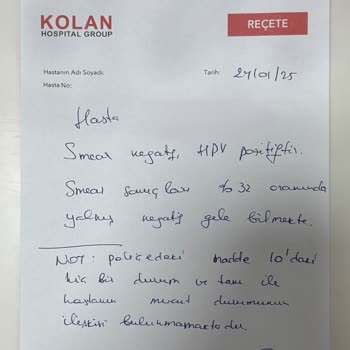 KOLAN
HOSPITAL GROUP
REÇETE
Hastanın Adı Soyadı:
Tarih: 24/01/25
Hasta No:
Hasta
Smear negatif, HPV pozitiftir.
Smear sonuçları %32 oranında
yalnış negatif gele bilmekte.
NOT: poliçedeki madde 10'daki
hiç bir durum ve tanı ile
hastanın mevcut durumunun
ilişkisi bulunmamaktadır